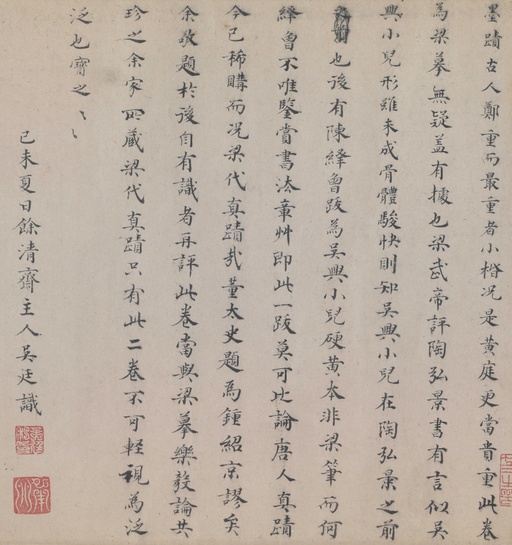 墨蹟古人鄭重而最重者小楷况是黄庭更當貴重此卷
為梁摹無疑盖有據也梁武帝評陶弘景書有言似吳
興小兒形雖未成骨體駿快則知吳興小兒在陶弘景之前
也後有陳繹曾跋為吳興小兒硬黄本非梁筆而何
繹曾不唯鑒賞書法章艸即此一跋莫可比論唐人真蹟
今已稀購而况梁代真蹟哉董太史題為鍾紹京謬矣
余敢題於後自有識者再評此卷當與梁摹樂毅論共
珍之余家所藏梁代真蹟只有此二卷不可輕視為泛
泛也寳之〻〻
己未夏日餘清齋主人吳廷識